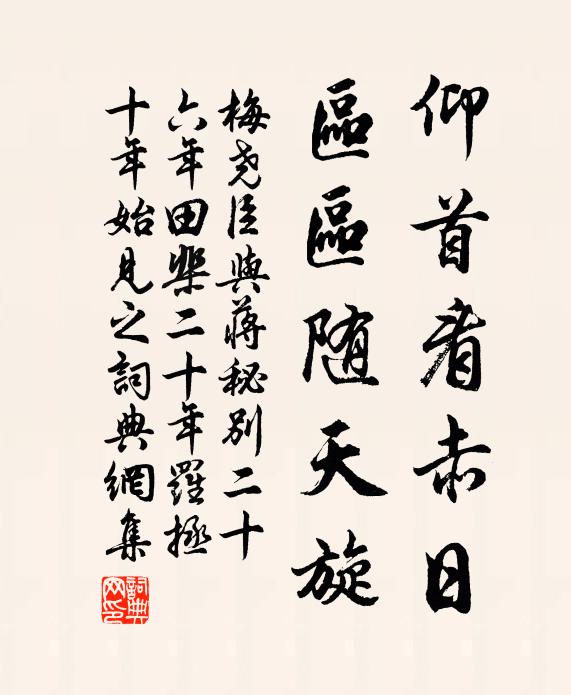 仰首看赤日
區區随天旋
梅堯臣與蔣秘別二十
六年田棐二十年羅拯
十年始見之詞典網集
詞典网印